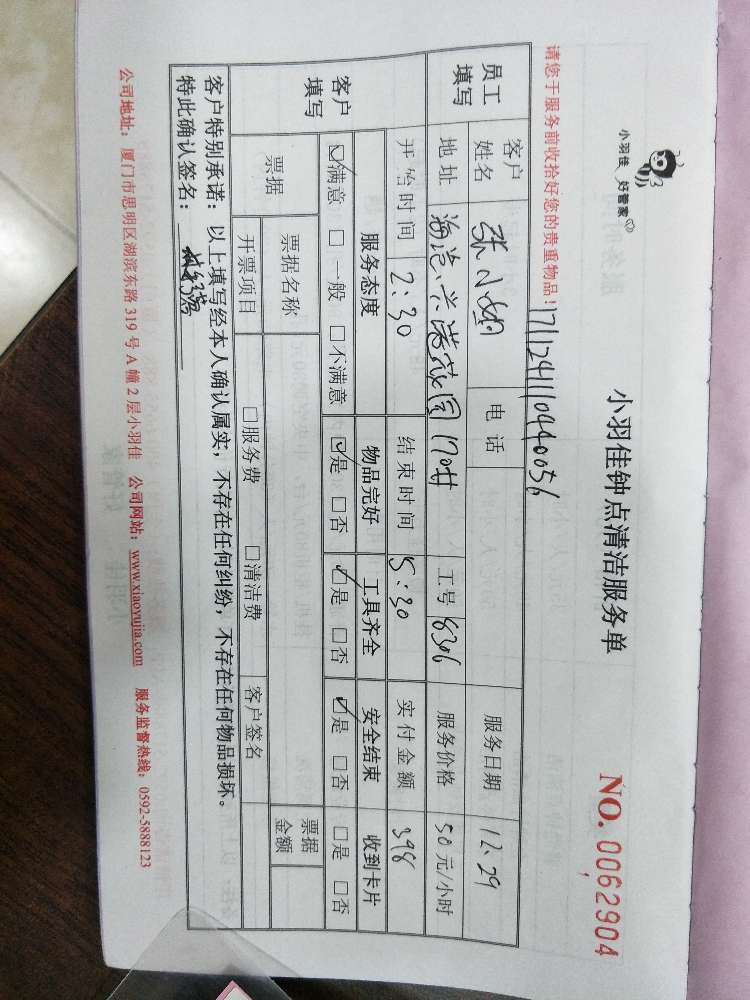 小羽佳 好管家
小羽佳钟点清洁服务单
NO. 0062904
请您于服务前收拾好您的贵重物品!
员工填写 客户姓名 电话 服务日期 12.29
地址 工号 8306 服务价格 50元/小时
开始时间 2:30 结束时间 5:30 实付金额 398
客户填写 服务态度 物品完好 工具齐全 安全结束 收到卡片
☑满意 □一般 □不满意 ☑是 □否 ☑是 □否 ☑是 □否 □是 □否
票据 票据名称 票据金额
开票项目 □服务费 □清洁费 客户签名
客户特别承诺：以上填写经本人确认属实，不存在任何纠纷，不存在任何物品损坏。
特此确认签名：
公司地址：厦门市思明区湖滨东路 319 号 A 幢 2 层小羽佳 公司网站：www.xiaoyujia.com 服务监督热线：0592-5888123